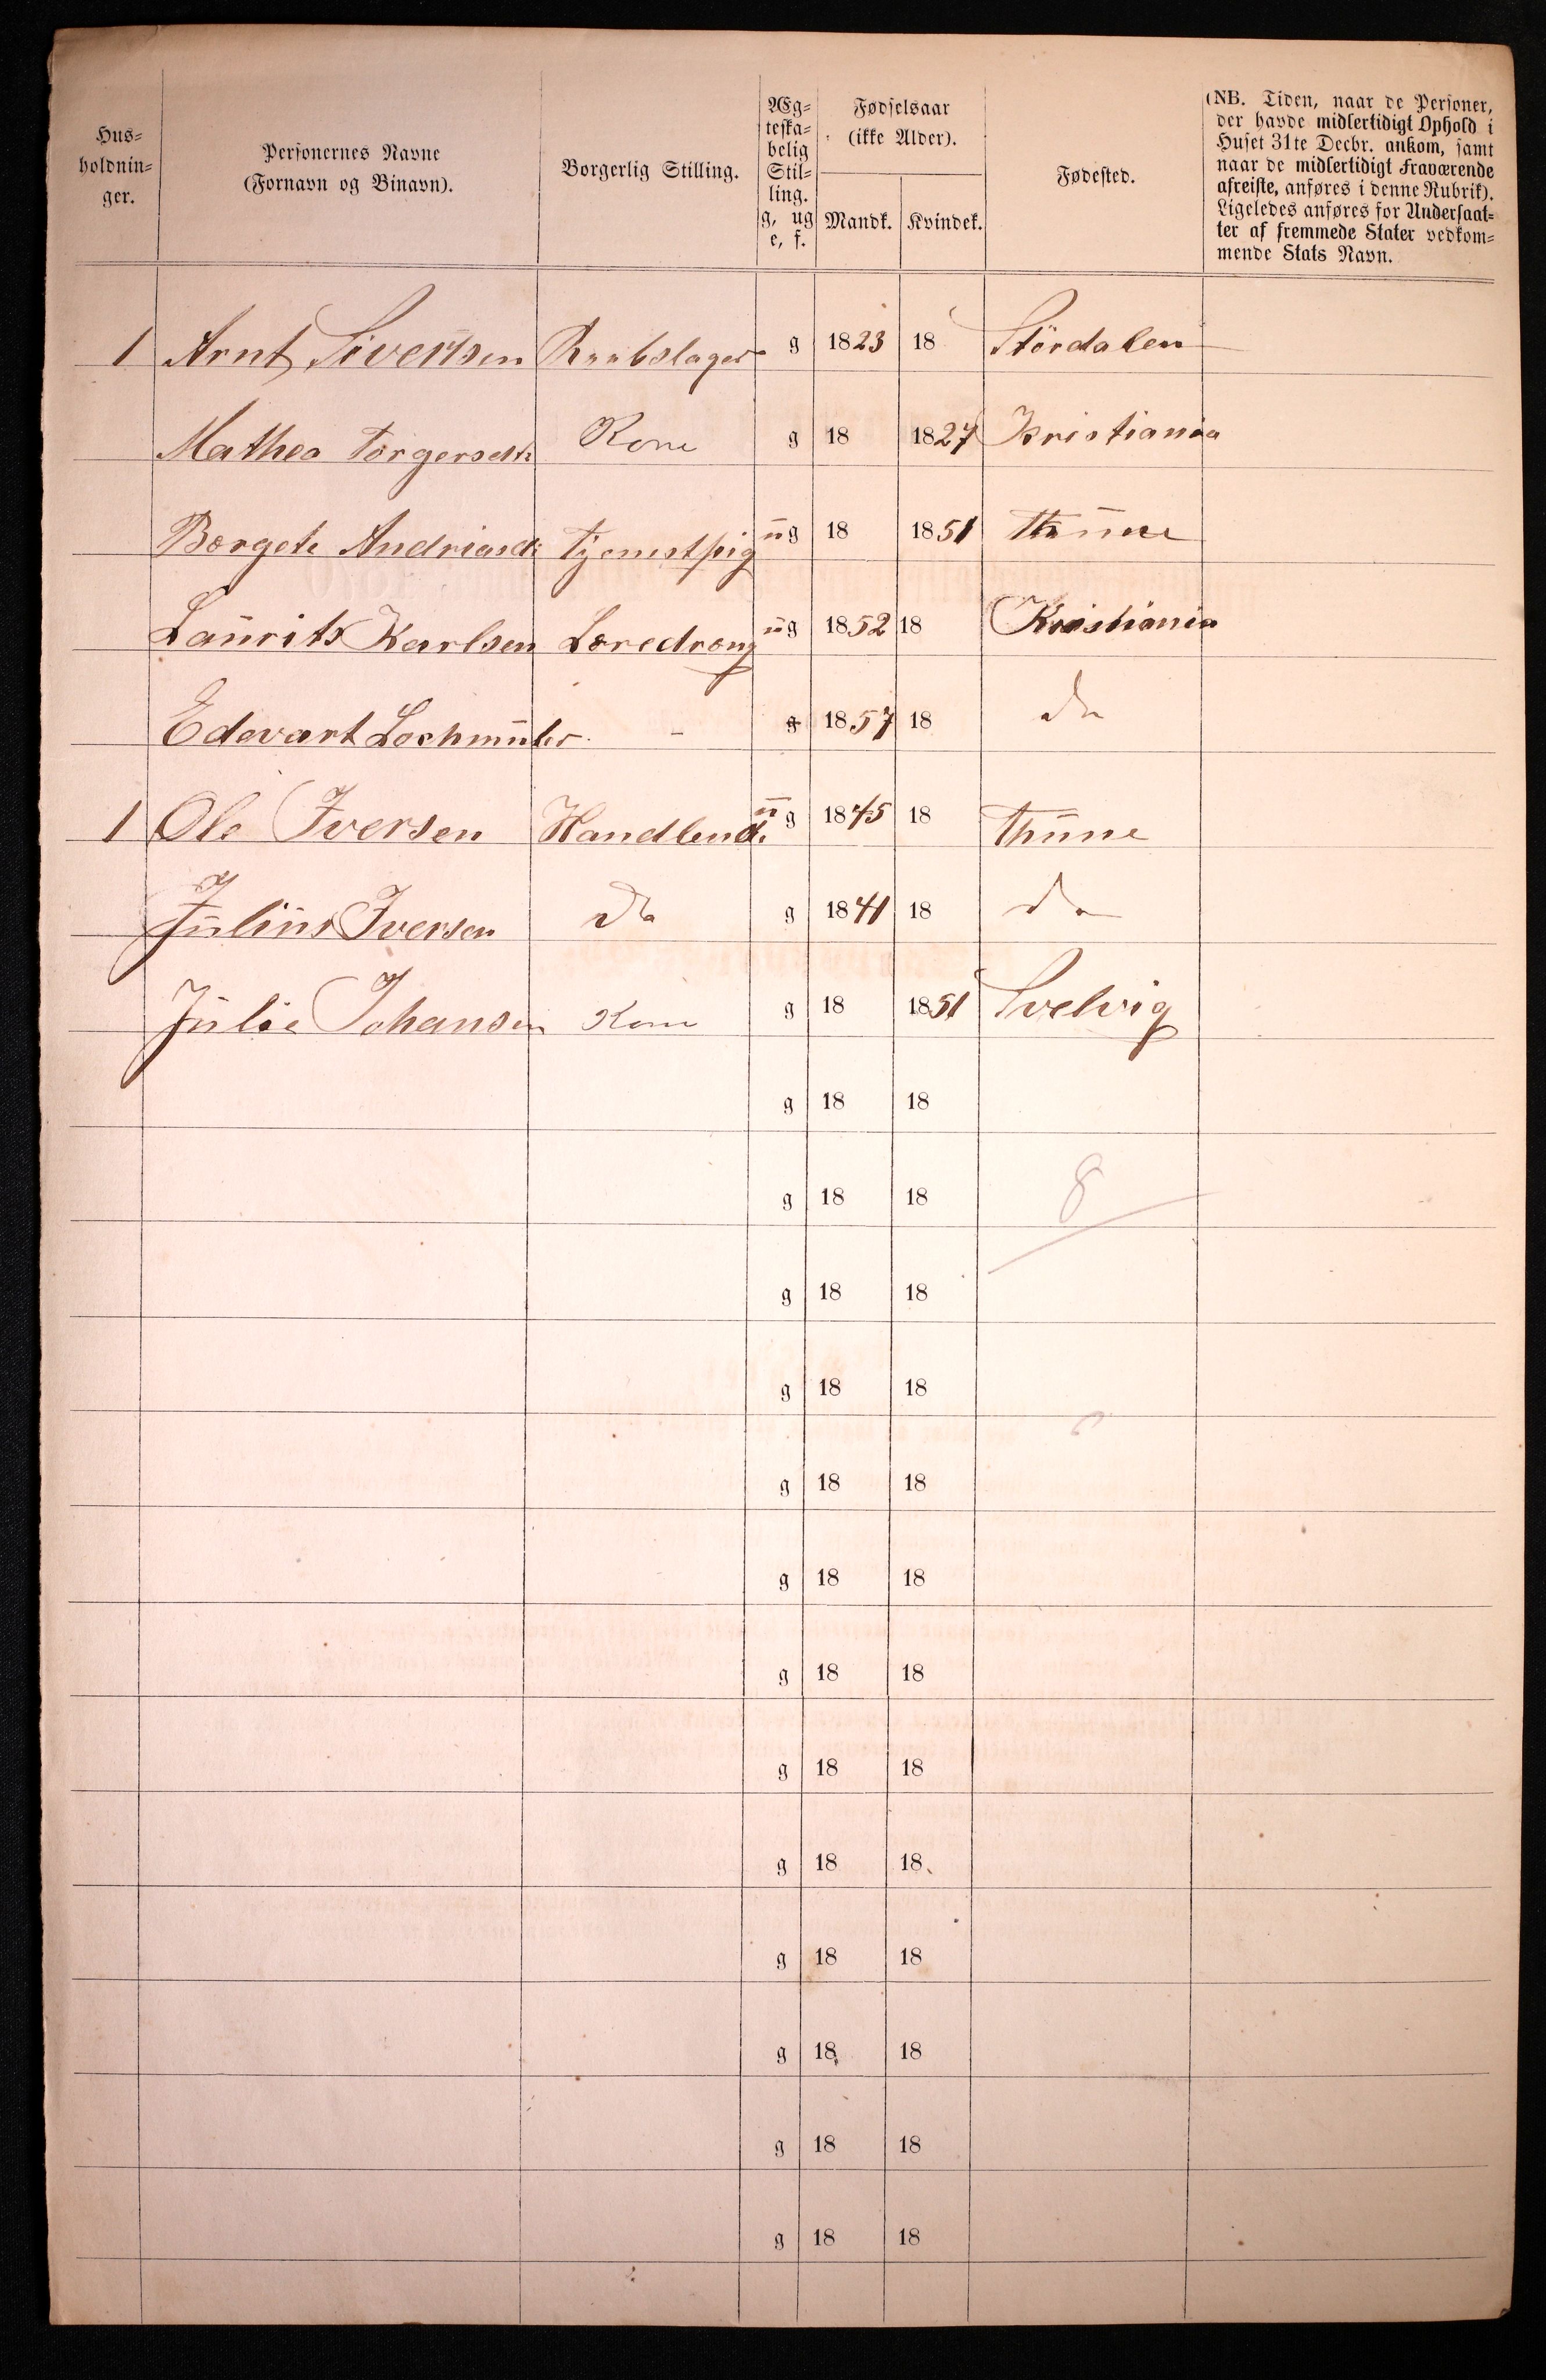 Hus-
holdnin-
ger.
Personernes Navne
(Fornavn og Binavn).
Borgerlig Stilling.
Æg-
teska-
belig
Stil-
ling.
g, ug
e, f.
Fødselsaar
(ikke Alder).
Mandk. Kvindek.
Fødested.
(NB. Tiden, naar de Personer,
der havde midlertidigt Ophold i
Huset 31te Decbr. ankom, samt
naar de midlertidigt Fraværende
afreiste, anføres i denne Rubrik).
Ligeledes anføres for Undersaat-
ter af fremmede Stater vedkom-
mende Stats Navn.
1 Arnt Sivertsen g 1823 18 Stördalen
Mathea Torgersdtr Kone g 18 1827 Kristiania
Borgete Andriasd: Tjenestpig ug 18 1851 Thune
Laurits Karlsen Loredreng ug 1852 18 Kristiania
Edevart - g 1857 18 do
1 Ole Iversen Handlend. ug 1845 18 Thune
Julius Iversen do g 1841 18 do
Julie Johansen Kone g 18 1851 Svelvig
g 18 18
g 18 18 8
g 18 18
g 18 18
g 18 18
g 18 18
g 18 18
g 18 18
g 18 18
g 18 18
g 18 18
g 18 18
g 18 18